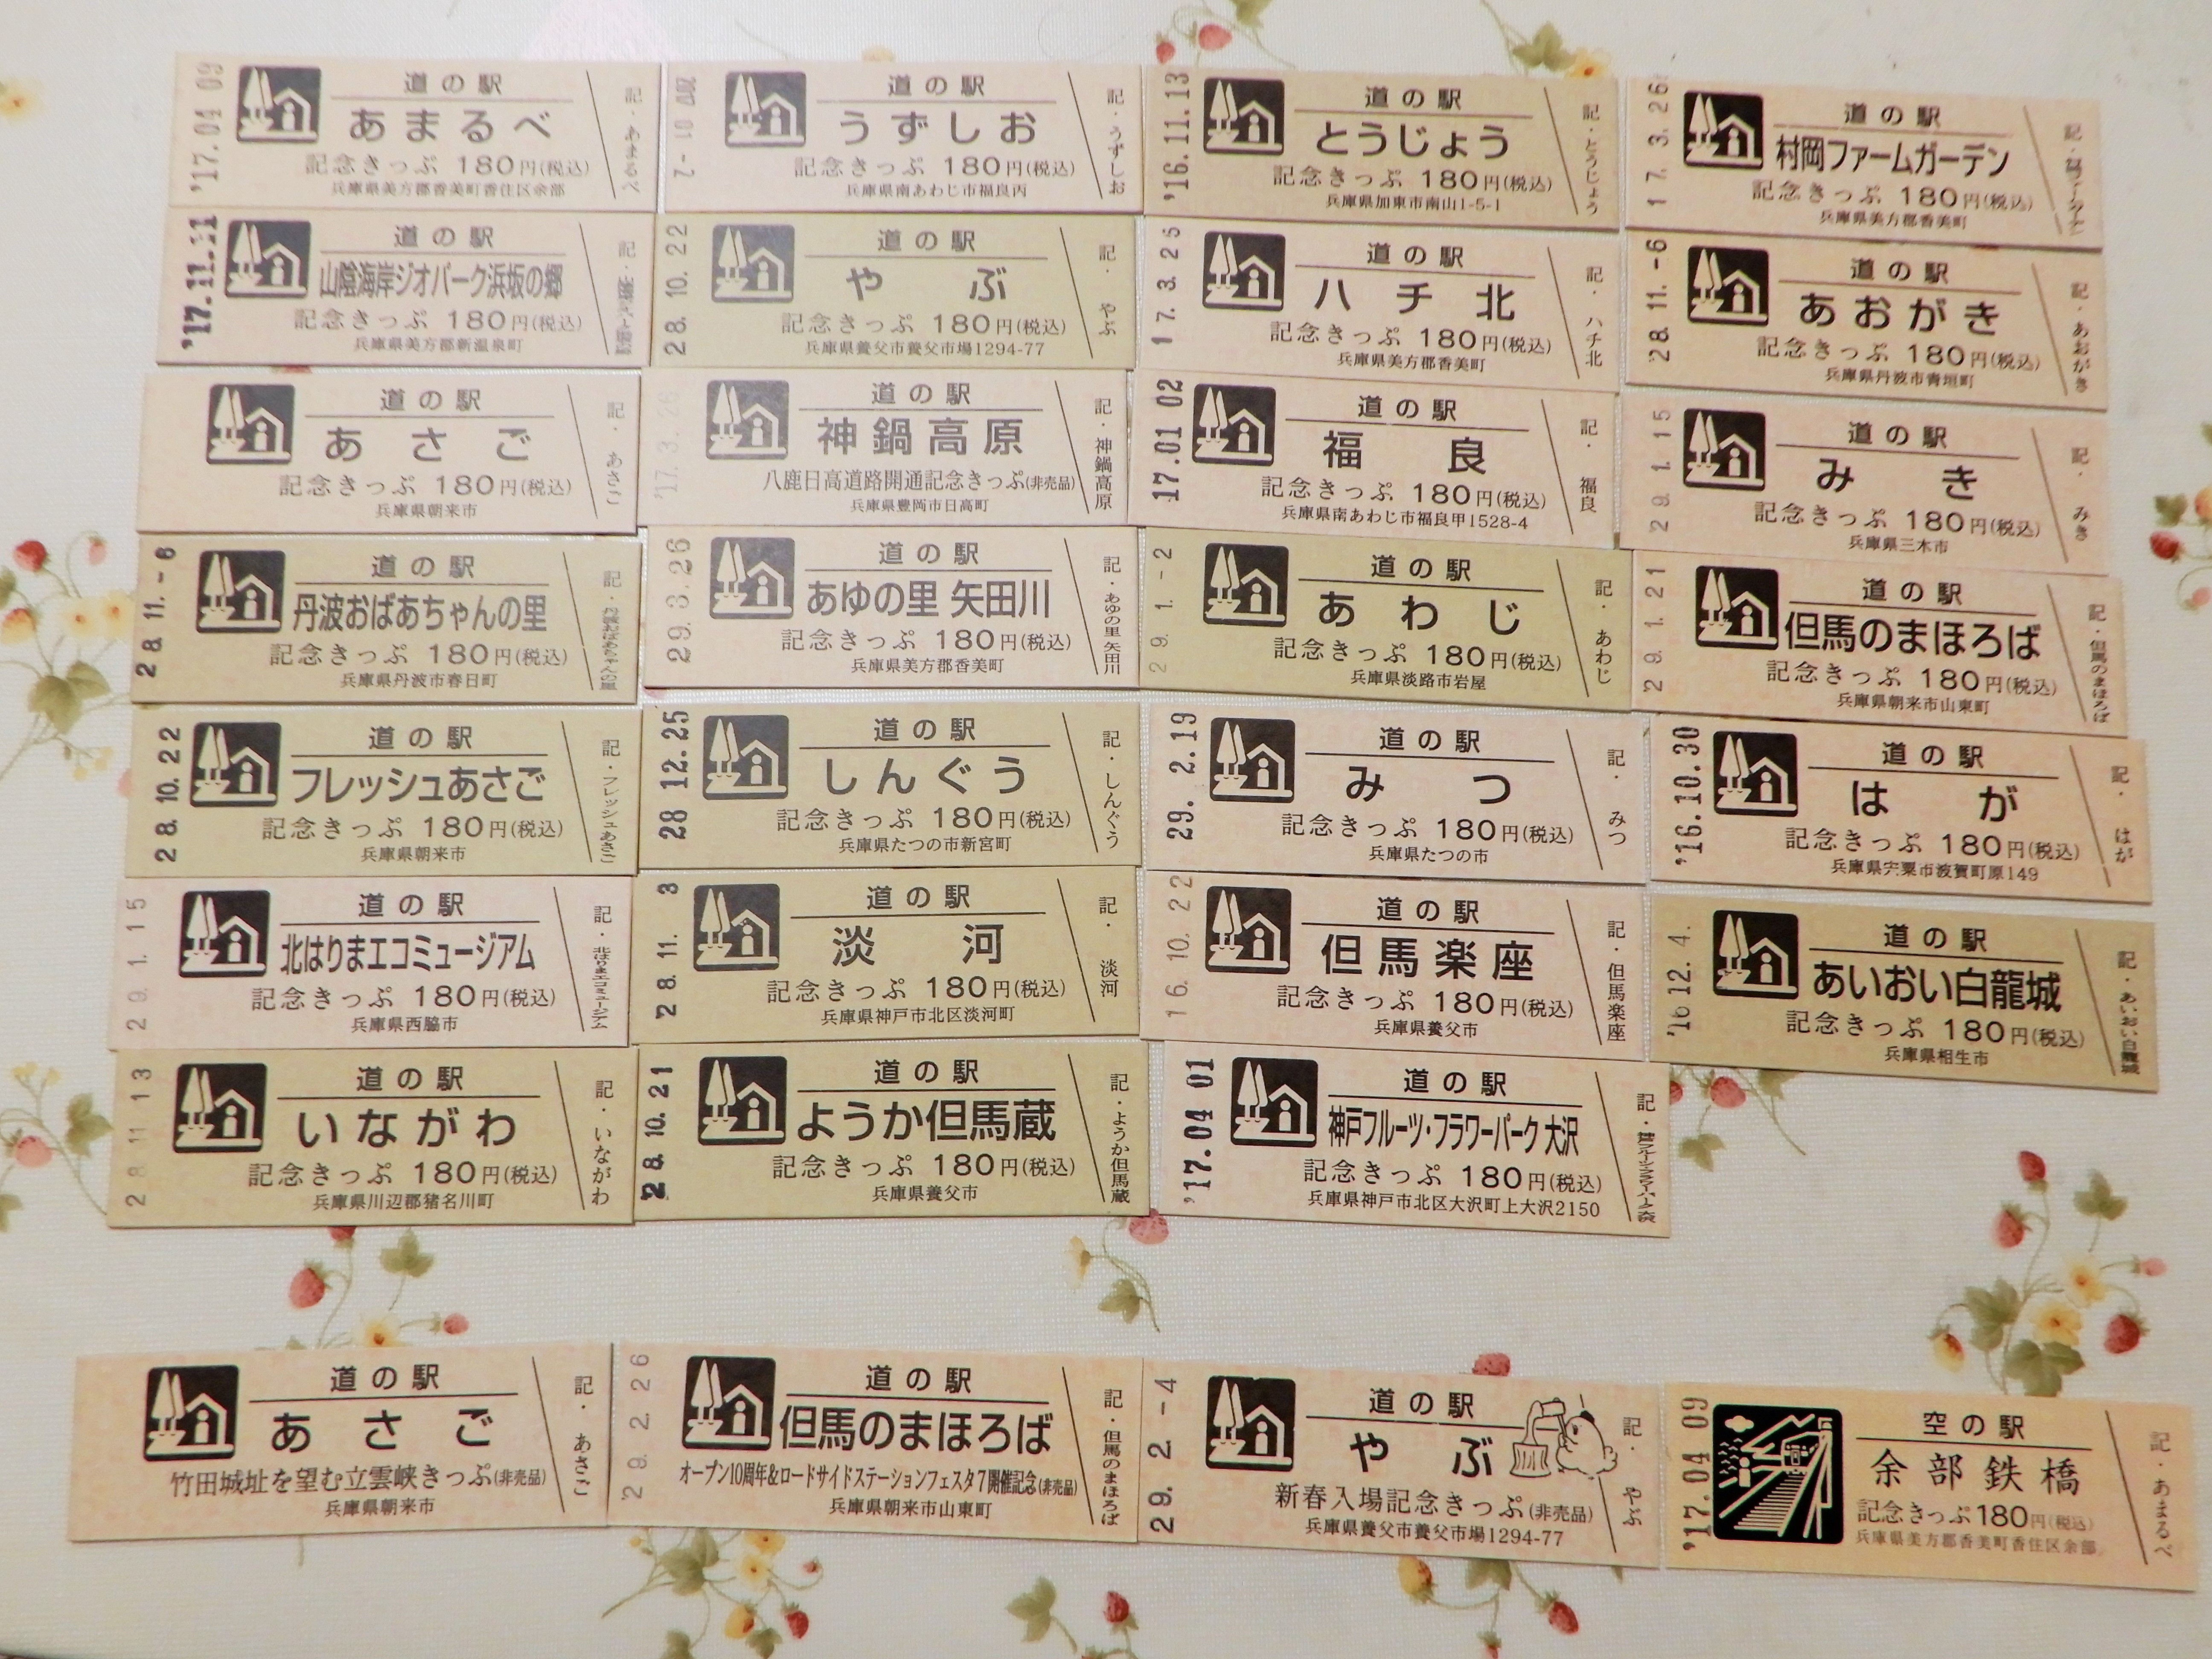 '17.04 09
道の駅
あまるべ
記念きっぷ 180円(税込)
兵庫県美方郡香美町香住区余部
記・あまるべ
道の駅
うずしお
記念きっぷ 180円(税込)
兵庫県南あわじ市福良丙
記・うずしお
'16.11.13
道の駅
とうじょう
記念きっぷ 180円(税込)
兵庫県加東市南山1-5-1
記・とうじょう
17.3.26
道の駅
村岡ファームガーデン
記念きっぷ 180円(税込)
兵庫県美方郡香美町
記・村岡ファームガーデン
'17.11.11
道の駅
山陰海岸ジオパーク浜坂の郷
記念きっぷ 180円(税込)
兵庫県美方郡新温泉町
28.10.22
道の駅
やぶ
記念きっぷ 180円(税込)
兵庫県養父市養父市場1294-77
記・やぶ
17.3.25
道の駅
ハチ北
記念きっぷ 180円(税込)
兵庫県美方郡香美町
記・ハチ北
28.11.-6
道の駅
あおがき
記念きっぷ 180円(税込)
兵庫県丹波市青垣町
記・あおがき
道の駅
あさご
記念きっぷ 180円(税込)
兵庫県朝来市
記・あさご
'17.3.26
道の駅
神鍋高原
八鹿日高道路開通記念きっぷ(非売品)
兵庫県豊岡市日高町
記・神鍋高原
17.01 02
道の駅
福良
記念きっぷ 180円(税込)
兵庫県南あわじ市福良甲1528-4
記・福良
29.1.15
道の駅
みき
記念きっぷ 180円(税込)
兵庫県三木市
記・みき
28.11.-6
道の駅
丹波おばあちゃんの里
記念きっぷ 180円(税込)
兵庫県丹波市春日町
記・丹波おばあちゃんの里
29.3.26
道の駅
あゆの里 矢田川
記念きっぷ 180円(税込)
兵庫県美方郡香美町
記・あゆの里 矢田川
29.1.-2
道の駅
あわじ
記念きっぷ 180円(税込)
兵庫県淡路市岩屋
記・あわじ
29.1.21
道の駅
但馬のまほろば
記念きっぷ 180円(税込)
兵庫県朝来市山東町
記・但馬のまほろば
28.10.22
道の駅
フレッシュあさご
記念きっぷ 180円(税込)
兵庫県朝来市
記・フレッシュあさご
28 12.25
道の駅
しんぐう
記念きっぷ 180円(税込)
兵庫県たつの市新宮町
記・しんぐう
29.2.19
道の駅
みつ
記念きっぷ 180円(税込)
兵庫県たつの市
記・みつ
'16.10.30
道の駅
はが
記念きっぷ 180円(税込)
兵庫県宍粟市波賀町原149
記・はが
29.1.15
道の駅
北はりまエコミュージアム
記念きっぷ 180円(税込)
兵庫県西脇市
記・北はりまエコミュージアム
28.11.3
道の駅
淡河
記念きっぷ 180円(税込)
兵庫県神戸市北区淡河町
記・淡河
16.10.22
道の駅
但馬楽座
記念きっぷ 180円(税込)
兵庫県養父市
記・但馬楽座
'16 12.4.
道の駅
あいおい白龍城
記念きっぷ 180円(税込)
兵庫県相生市
記・あいおい白龍城
28 11 13
道の駅
いながわ
記念きっぷ 180円(税込)
兵庫県川辺郡猪名川町
記・いながわ
28.10.21
道の駅
ようか但馬蔵
記念きっぷ 180円(税込)
兵庫県養父市
記・ようか但馬蔵
'17.04 01
道の駅
神戸フルーツ・フラワーパーク大沢
記念きっぷ 180円(税込)
兵庫県神戸市北区大沢町上大沢2150
記・神戸フルーツ・フラワーパーク大沢
道の駅
あさご
竹田城址を望む立雲峡きっぷ(非売品)
兵庫県朝来市
記・あさご
29.2.26
道の駅
但馬のまほろば
オープン10周年&ロードサイドステーションフェスタ7開催記念(非売品)
兵庫県朝来市山東町
記・但馬のまほろば
29.2.-4
道の駅
やぶ
新春入場記念きっぷ(非売品)
兵庫県養父市養父市場1294-77
記・やぶ
'17.04 09
空の駅
余部鉄橋
記念きっぷ180円(税込)
兵庫県美方郡香美町香住区余部
記・あまるべ